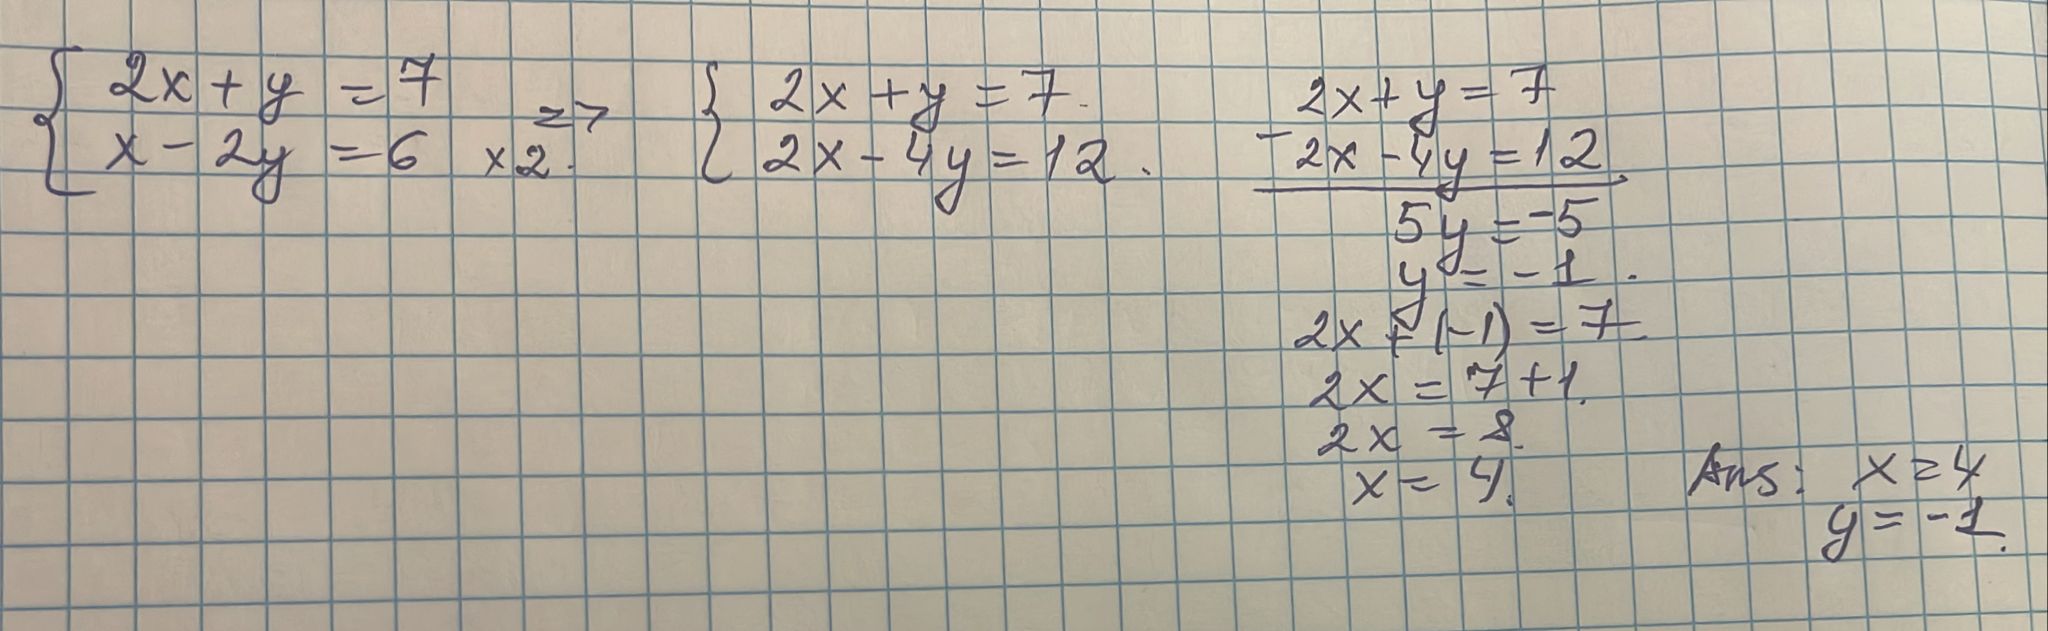 2x + y = 7
x - 2y = 6 x2. =>
2x + y = 7.
2x - 4y = 12.
2x + y = 7
- 2x - 4y = 12
5y = -5
y = -1.
2x + (-1) = 7
2x = 7 + 1.
2x = 8.
x = 4.
Ans: x = 4
y = -1.